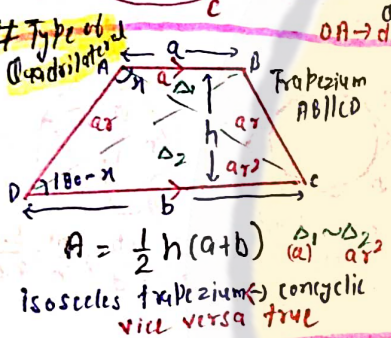 C
# Type of
Quadrilateral
OA → d
a
A
B
x
a
Δ1
Trapezium
AB||CD
ar
h
ar
Δ2
ar²
D
180-x
C
b
A = 1/2 h(a+b) Δ1 ~ Δ2
(a) ar²
isosceles trapezium ↔ concyclic
vice versa true